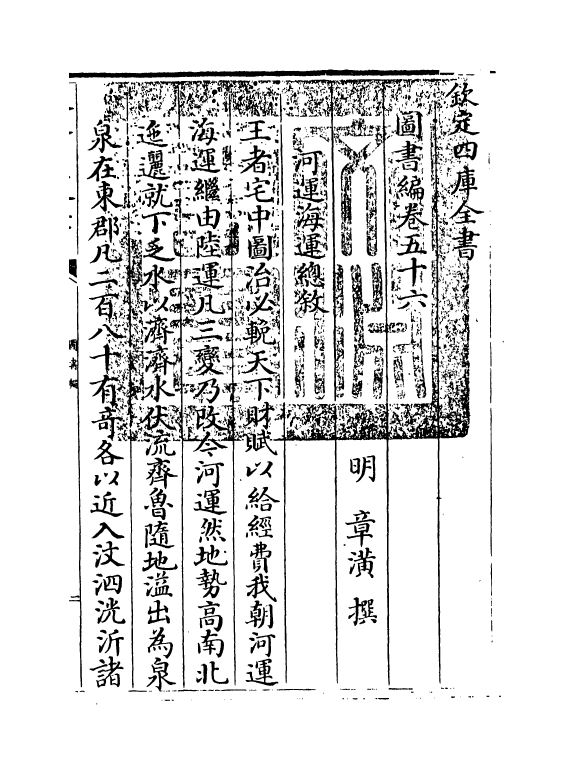 欽定四庫全書
圖書編卷五十六
明 章潢 撰
河運海運總敘
王者宅中圖治必輓天下財賦以給經費我朝河運
海運繼由陸運凡三變乃改今河運然地勢高南北
迤邐就下乏水以濟濟水伏流齊魯隨地溢出為泉
泉在東郡凡二百八十有奇各以近入汶泗洸沂諸
圖書編
二